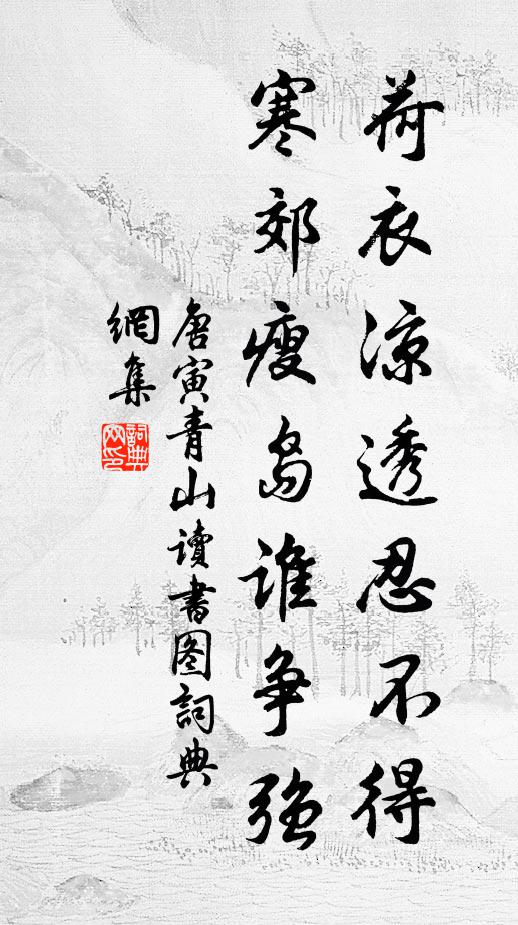 荷衣凉透忍不得
寒郊瘦岛谁争强
唐寅青山读書图詞典
網集
詞典
网印